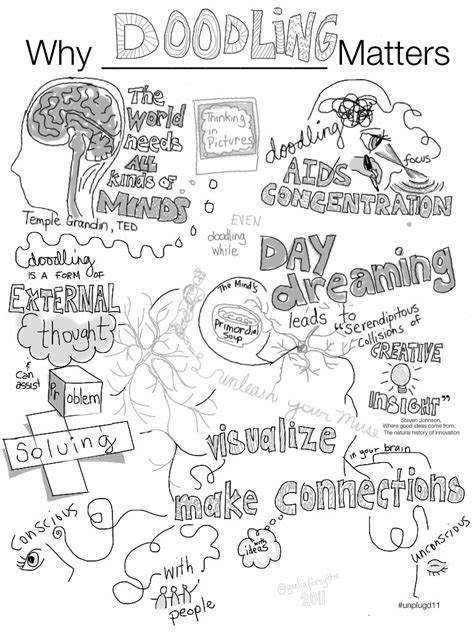 Why DOODLING Matters
The
World
needs
ALL
kinds of
MINDS
Temple Grandin, TED
Thinking
in
Pictures
doodling
AIDS
CONCENTRATION
focus
EVEN
doodling
while
DAY
dreaming
leads to
"Serendipitous
collisions of
CREATIVE
INSIGHT"
Steven Johnson,
Where good ideas come from.
The natural history of innovation
doodling
IS A FORM OF
EXTERNAL
thought
The Mind's
Primordial
Soup
& Can
assist
Problem
Solving
unleash your muse
visualize
in your brain
make connections
conscious
unconscious
with
ideas
with
people
@giuliaforsythe
2011
#unplugd11